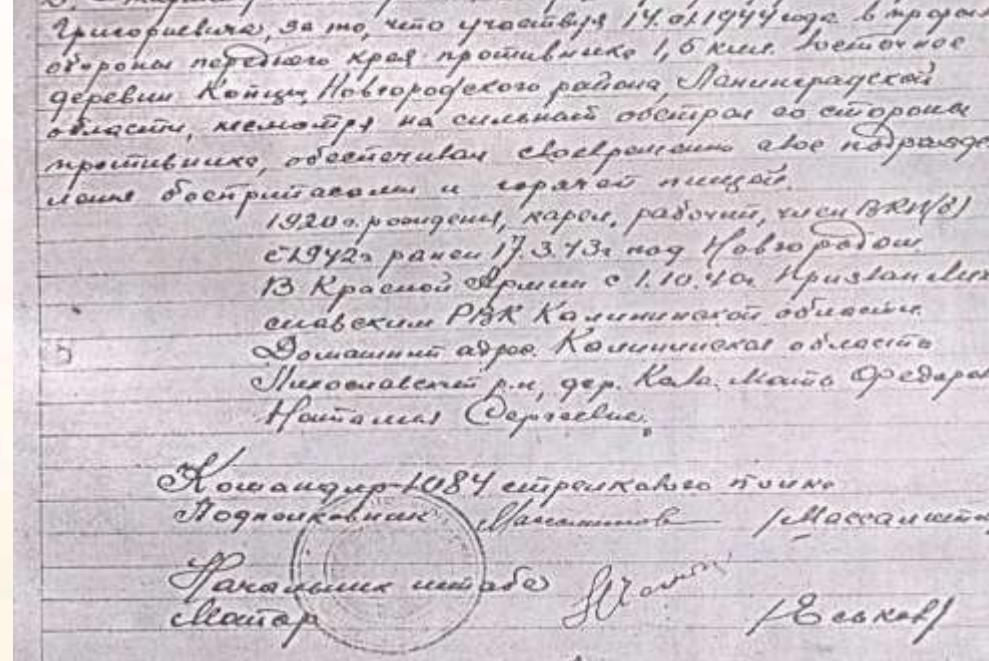 Григориевича, за то, что участвуя 14.01.1944 года в прорыв
обороны переднего края противника 1,5 клм. Восточнее
деревни Копцы, Новгородского района, Ленинградской
области, несмотря на сильный обстрел со стороны
противника, обеспечивал своевременно свое подразде-
ление боеприпасами и горячей пищей.
1920 г. рождения, карел, рабочий, член ВКП(б)
с 1942г ранен 17.3.43г под Новгородом
В Красной Армии с 1.10.40г Призван Лих
славским РВК Калининской области.
Домашний адрес Калининская область
Лихославский р-н, дер. Мать Федоро
Наталия Сергеевна.
Командир 1084 стрелкового полка
Подполковник
Начальник штаба
Майор /Еськов/